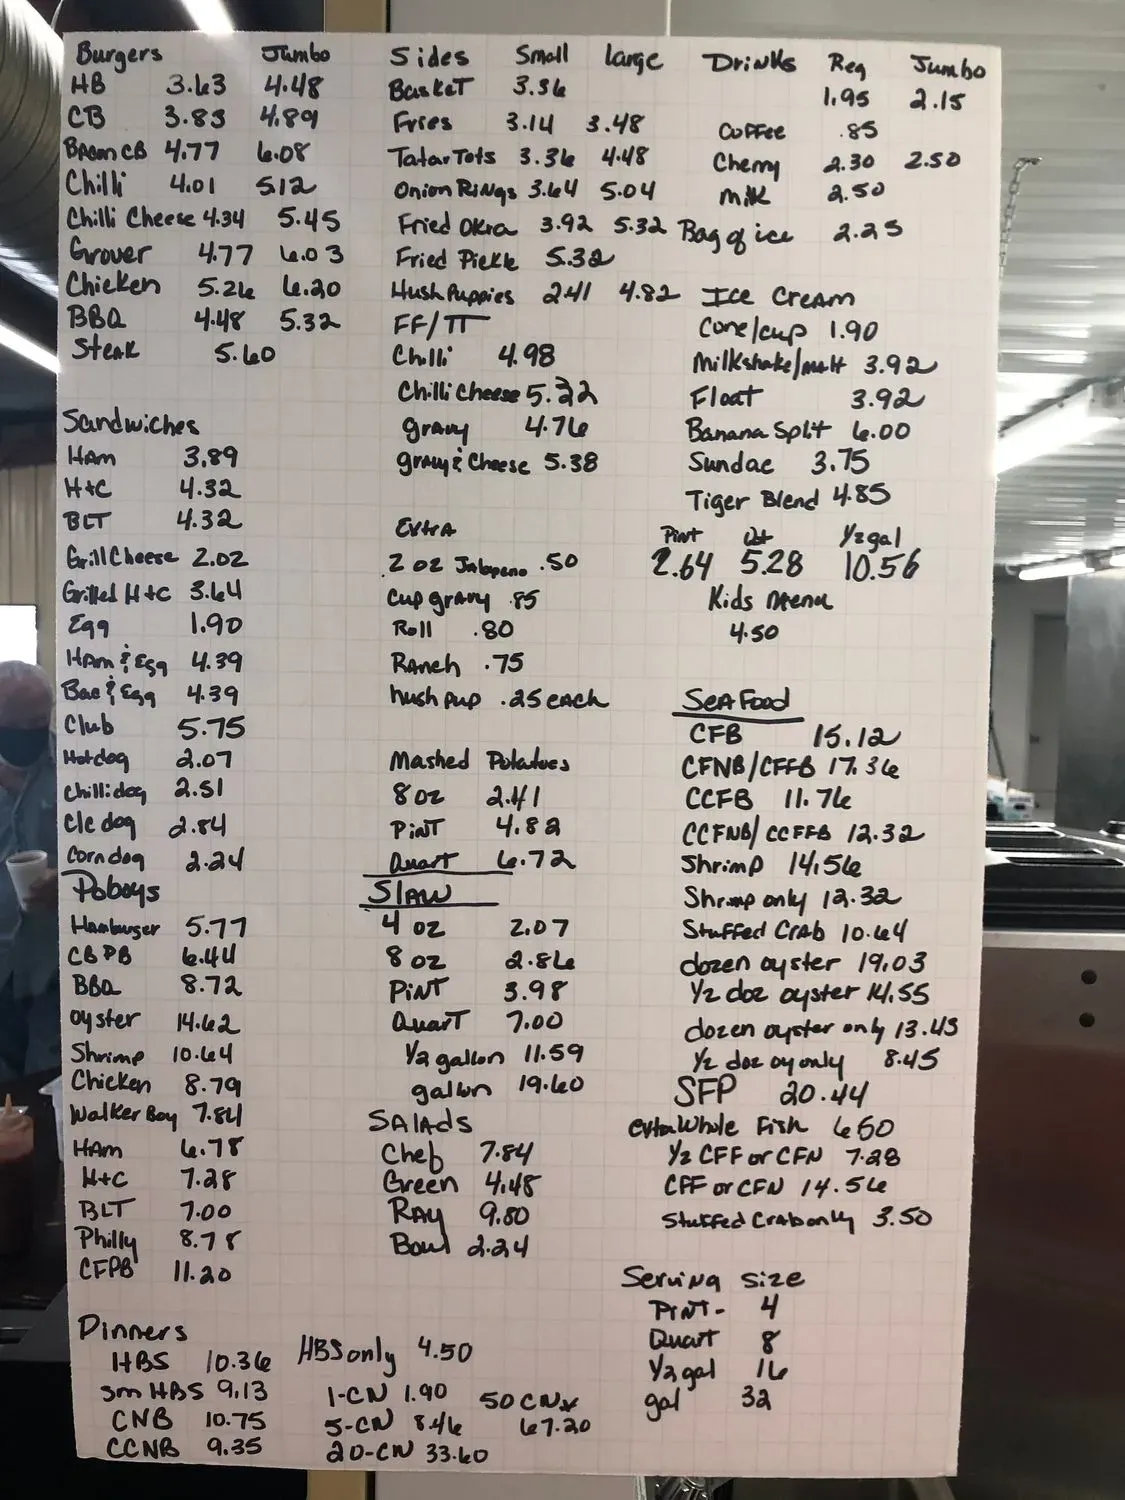 Burgers Jumbo
HB 3.63 4.48
CB 3.83 4.89
Bacon CB 4.77 6.08
Chilli 4.01 5.12
Chilli Cheese 4.34 5.45
Grover 4.77 6.03
Chicken 5.26 6.20
BBQ 4.48 5.32
Steak 5.60
Sandwiches
HAm 3.89
H+C 4.32
BLT 4.32
Grill Cheese 2.02
Grilled H+C 3.64
Egg 1.90
HAm & Egg 4.39
Bac & Egg 4.39
Club 5.75
Hotdog 2.07
Chillidog 2.51
Clc dog 2.84
Corndog 2.24
Poboys
Hamburger 5.77
CBPB 6.44
BBQ 8.72
oyster 14.62
Shrimp 10.64
Chicken 8.79
Walker Boy 7.84
HAm 6.78
H+C 7.28
BLT 7.00
Philly 8.78
CFPB 11.20
Dinners
HBS 10.36
sm HBS 9.13
CNB 10.75
CCNB 9.35
HBS only 4.50
1-CN 1.90
5-CN 8.46
20-CN 33.60
50 CN
67.20
Sides Small large
Basket 3.36
Fries 3.14 3.48
Tatar Tots 3.36 4.48
Onion Rings 3.64 5.04
Fried Okra 3.92 5.32
Fried Pickle 5.32
Hush Puppies 2.41 4.82
FF/TT
Chilli 4.98
Chilli Cheese 5.32
gravy 4.76
gravy & Cheese 5.38
Extra
2 oz Jalapeno .50
Cup gravy .85
Roll .80
Ranch .75
hush pup .25 each
Mashed Potatoes
8 oz 2.41
Pint 4.82
Quart 6.72
Slaw
4 oz 2.07
8 oz 2.86
Pint 3.98
Quart 7.00
1/2 gallon 11.59
gallon 19.60
SAlads
Chef 7.84
Green 4.48
RAy 9.80
Bowl 2.24
Drinks Reg Jumbo
1.95 2.15
Coffee .85
Cherry 2.30 2.50
Milk 2.50
Bag of ice 2.25
Ice Cream
Cone/cup 1.90
Milkshake/malt 3.92
Float 3.92
Banana Split 6.00
Sundae 3.75
Tiger Blend 4.85
Pint Qt 1/2 gal
2.64 5.28 10.56
Kids Menu
4.50
SeAFood
CFB 15.12
CFNB/CFFB 17.36
CCFB 11.76
CCFNB/CCFFB 12.32
Shrimp 14.56
Shrimp only 12.32
Stuffed CrAb 10.64
dozen oyster 19.03
1/2 doz oyster 14.55
dozen oyster only 13.43
1/2 doz oy only 8.45
SFP 20.44
extra Whole Fish 6.50
1/2 CFF or CFN 7.28
CFF or CFN 14.56
Stuffed Crab only 3.50
Serving size
Pint- 4
Quart 8
1/2 gal 16
gal 32